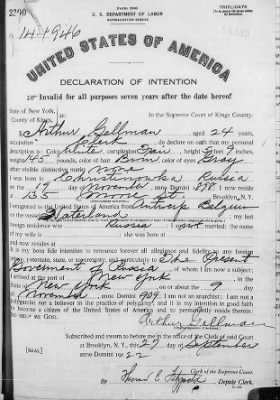 2290
Form 2203
TRIPLICATE
U. S. DEPARTMENT OF LABOR
NATURALIZATION SERVICE
14-4946
UNITED STATES OF AMERICA
DECLARATION OF INTENTION
Invalid for all purposes seven years after the date hereof
State of New York,
County of Kings,
In the Supreme Court of Kings County.
Arthur Gellman aged 24 years,
occupation Clerk, do declare on oath that my personal
description is: Color White, complexion Fair, height 5 feet 9 inches,
weight 145 pounds, color of hair Brown, color of eyes Gray
other visible distinctive marks None
I was born in Russia
on the 17 day of November, anno Domini 1898; I now reside
at St., Brooklyn, N.Y.
I emigrated to the United States of America from Antwerp Belgium
on the vessel Vaterland; my last
foreign residence was Russia; I am not married; the name
of my wife is; she was born at
and now resides at
It is my bona fide intention to renounce forever all allegiance and fidelity to any foreign
prince, potentate, state, or sovereignty, and particularly to The Present
Government of Russia, of whom I am now a subject;
I arrived at the port of New York, in the
State of New York, on or about the 9 day
of November, anno Domini 1909; I am not an anarchist; I am not a
polygamist nor a believer in the practice of polygamy; and it is my intention in good faith
to become a citizen of the United States of America and to permanently reside therein:
Arthur Gellman
Subscribed and sworn to before me in the office of the Clerk of said Court
at Brooklyn, N.Y., this 27 day of September
anno Domini 1922
[SEAL]
Clerk of the Supreme Court.
Deputy Clerk.